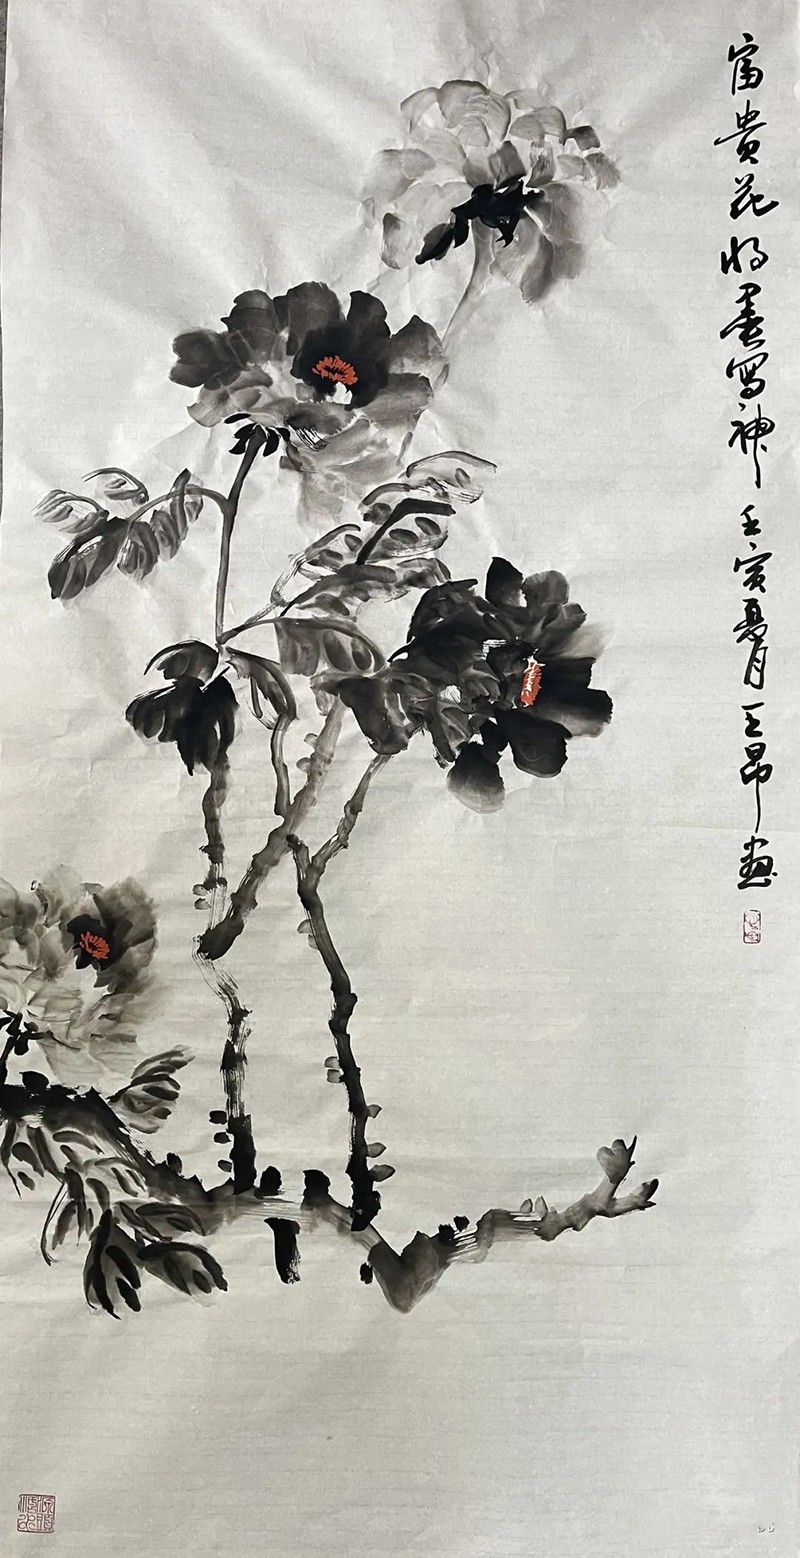 富貴花将墨寫神壬寅夏月王昂画